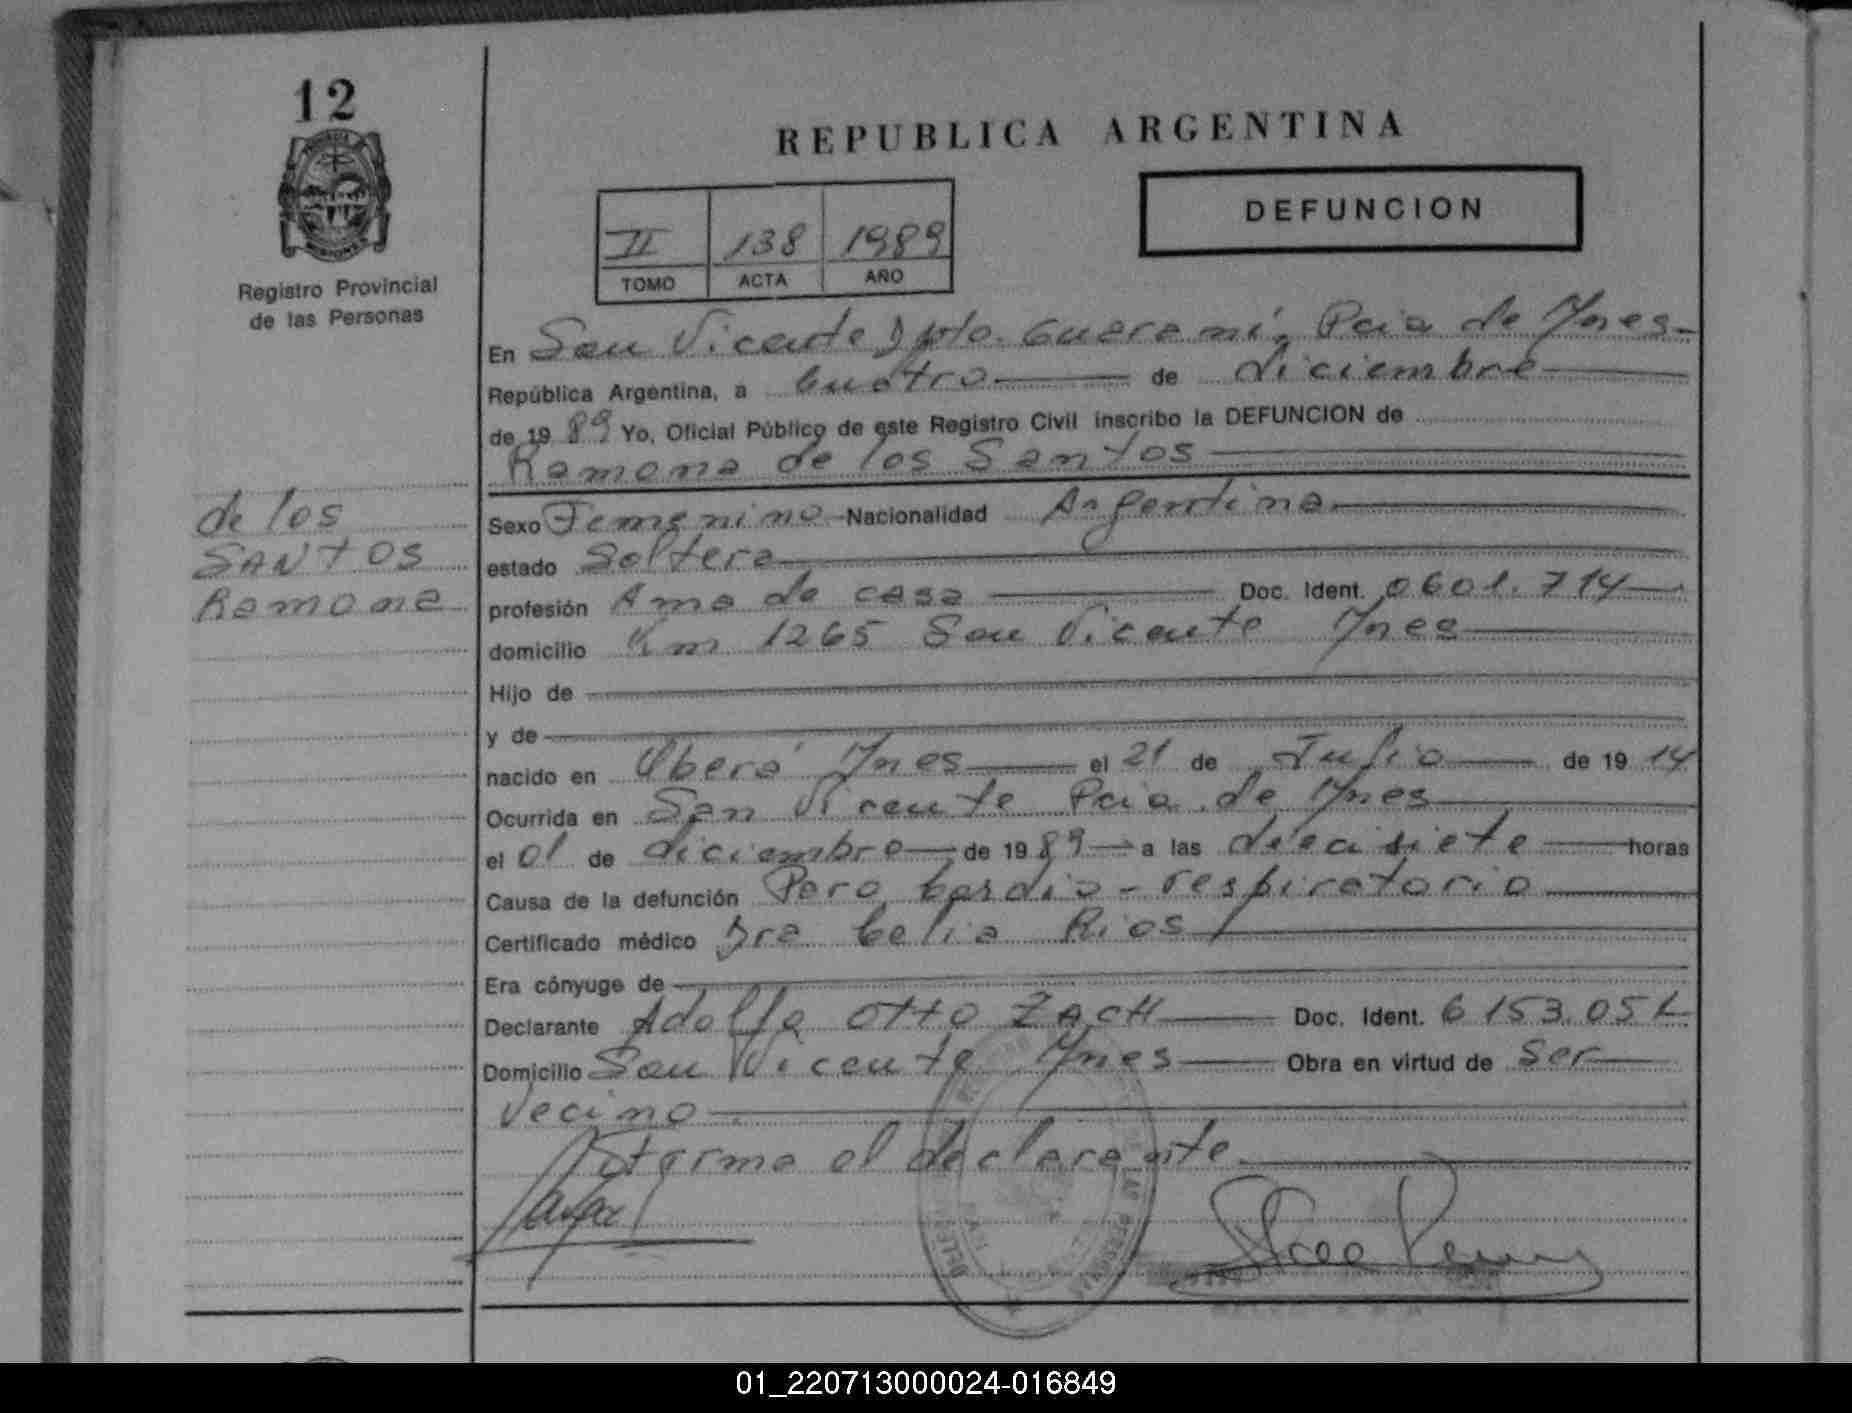 12
Registro Provincial
de las Personas
REPUBLICA ARGENTINA
II 138 1989
TOMO ACTA AÑO
DEFUNCION
En San Vicente Dpto. Guaraní, Pcia de Mnes-
República Argentina, a Cuatro de diciembre
de 1989 Yo, Oficial Público de este Registro Civil inscribo la DEFUNCION de
Ramona de los Santos
de los
SANTOS
Ramona
Sexo Femenino Nacionalidad Argentina
estado Soltera
profesión Ama de casa Doc. Ident. 0601.714
domicilio Km 1265 San Vicente Mnes
Hijo de
y de
nacido en Oberá Mnes el 21 de Julio de 1914
Ocurrida en San Vicente Pcia de Mnes
el 01 de diciembre de 1989 a las diecisiete horas
Causa de la defunción Paro Cardio-respiratorio
Certificado médico Dra Celia Rios
Era cónyuge de
Declarante Adolfo Otto ZACH Doc. Ident. 6153.051
Domicilio San Vicente Mnes Obra en virtud de Ser
Vecino.
el declarante
01_220713000024-016849